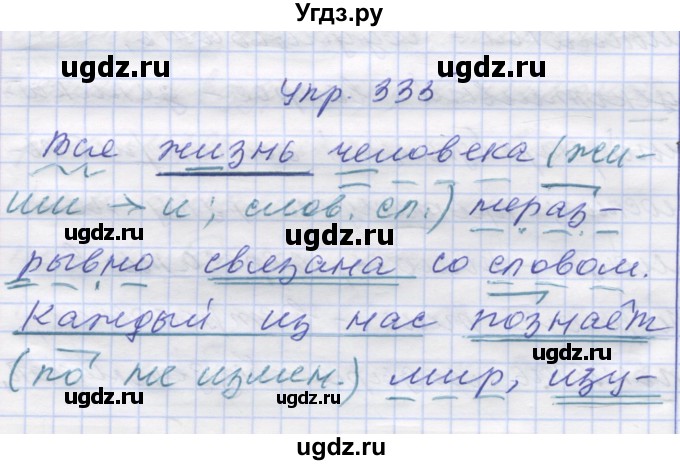 Угдз.ру
ugdz.ru ugdz.ru
упр. 333
Вся жизнь человека (жи-
ши → и; слов. сл.) нераз-
ugdz.ru ugdz.ru
рывно связана со словом.
Каждый из нас познаёт
ugdz.ru ugdz.ru
(по не измен.) мир, изу-
ugdz.ru ugdz.ru
ugdz.ru